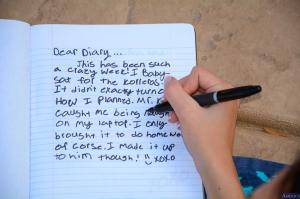 Dear Diary...
This has been such
a crazy week! I Baby-
sat for the
It didn't exactly turn
How I planned. Mr.
caught me being
on my laptop. I only
brought it to do homewo
of corse. I made it up
to him though! xoxo